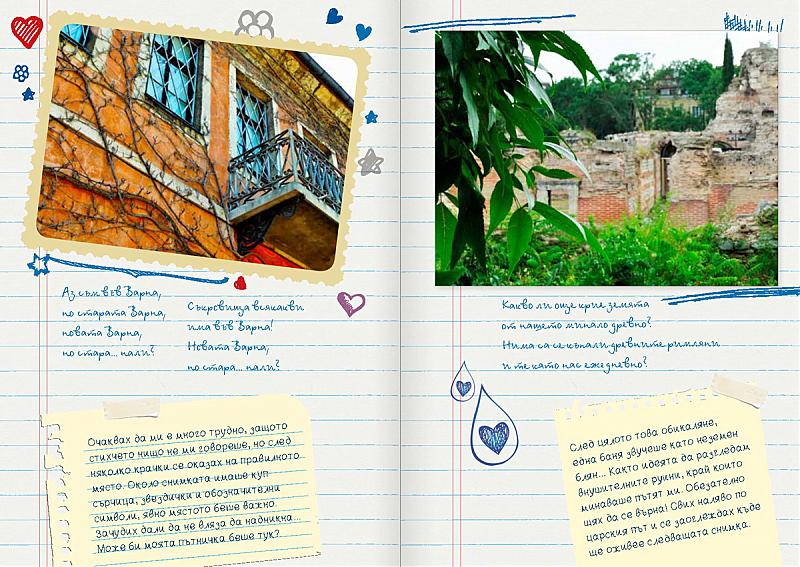 Аз съм във Варна,
по старата Варна,
новата Варна,
по стара... нали?
Съкровища всякакви
има във Варна!
Новата Варна,
по стара... нали?
Очаквах да ми е много трудно, защото
стихчето нищо не ми говореше, но след
няколко крачки се оказах на правилното
място. Около снимката имаше куп
сърчица, звездички и обозначителни
символи, явно мястото беше важно.
Зачудих дали да не вляза да надникна...
Може би моята пътничка беше тук?
Какво ли още крие земята
от нашето минало древно?
Нима са се къпали древните римляни
и те като нас ежедневно?
След цялото това обикаляне,
една баня звучеше като неземен
блян... Както идеята да разгледам
внушителните руини, край които
минаваше пътят ми. Обезателно
щях да се върна! Свих наляво по
царския път и се заоглеждах къде
ще оживее следващата снимка.